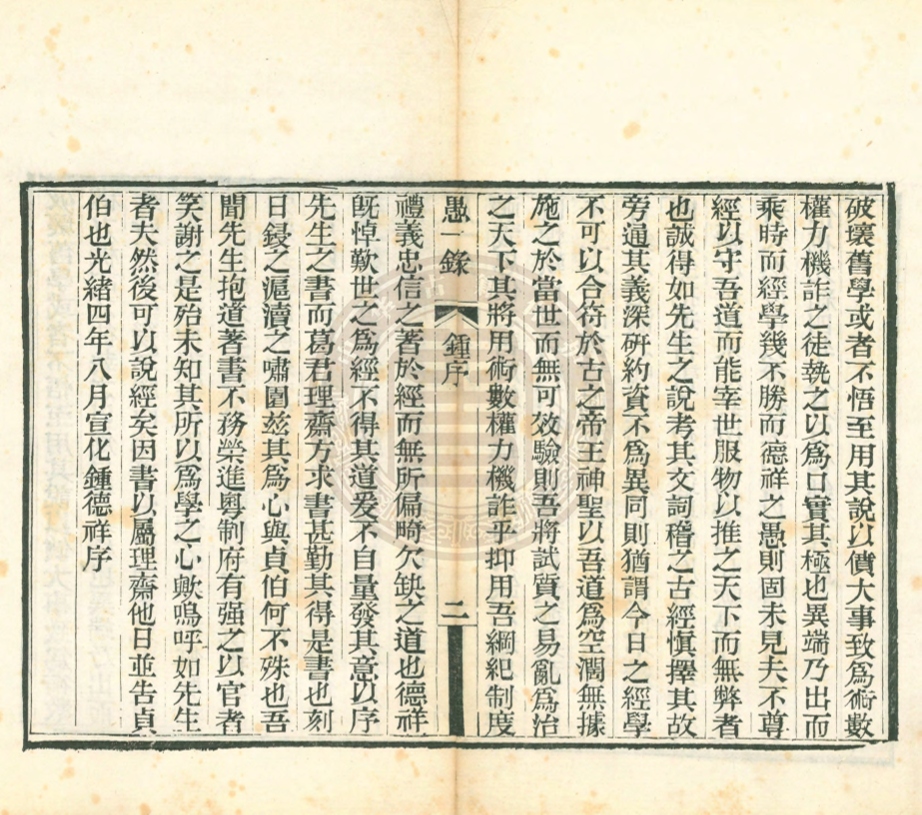 破壞舊學或者不悟至用其說以僨大事致爲術數
權力機詐之徒執之以爲口實其極也異端乃出而
乘時而經學幾不勝而德祥之愚則固未見夫不尊
經以守吾道而能宰世服物以推之天下而無弊者
也誠得如先生之說考其文詞稽之古經愼擇其故
旁通其義深硏約資不爲異同則猶謂今日之經學
不可以合符於古之帝王神聖以吾道爲空濶無據
施之於當世而無可效驗則吾將試質之易亂爲治
之天下其將用術數權力機詐乎抑用吾綱紀制度
愚一錄
鍾序
二
禮義忠信之著於經而無所偏畸欠缺之道也德祥
旣悼歎世之爲經不得其道爰不自量發其意以序
先生之書而葛君理齋方求書甚勤其得是書也刻
日鋟之滬瀆之嘯園茲其爲心與貞伯何不殊也吾
聞先生抱道著書不務榮進粵制府有强之以官者
笑謝之是殆未知其所以爲學之心歟嗚呼如先生
者夫然後可以說經矣因書以屬理齋他日並告貞
伯也光緒四年八月宣化鍾德祥序